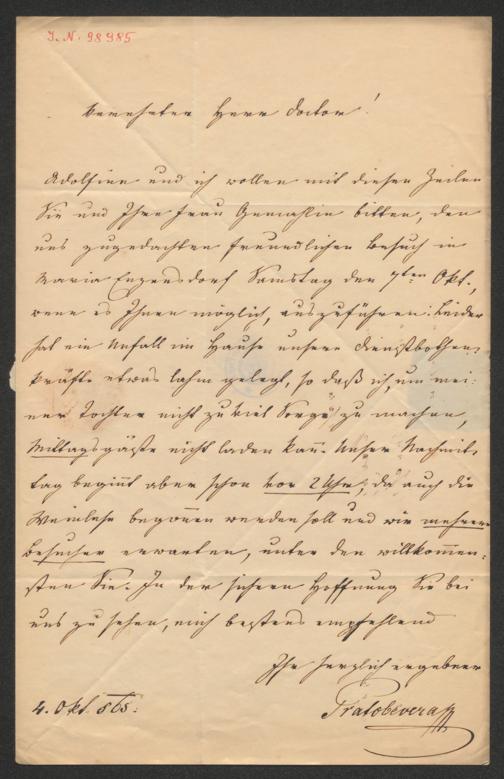 J. N. 98985
Verehrter Herr Doctor!
Adolfine und ich wollen mit diesen Zeilen
Sie und Ihre Frau Gemahlin bitten, den
uns zugedachten freundlichen Besuch in
Maria Enzersdorf Samstag den 7ten Okt.,
wenn es Ihnen möglich, auszuführen. Leider
hat ein Unfall im Hause unsere Dienstbothen,
kräfte etwas lahm gelegt, so daß ich, um mei-
ner Tochter nicht zu viel Sorge zu machen,
Mittagsgäste nicht laden kann. Unser Nachmit,
tag beginnt aber schon vor 2 Uhr, da auch die
Weinlese begonnen werden soll und wir mehrere
Besucher erwarten, unter den willkommen-
sten Sie. In der sichern Hoffnung Sie bei
uns zu sehen, mich bestens empfehlend
Ihr herzlich ergebener
4. Okt.
Pratobevera